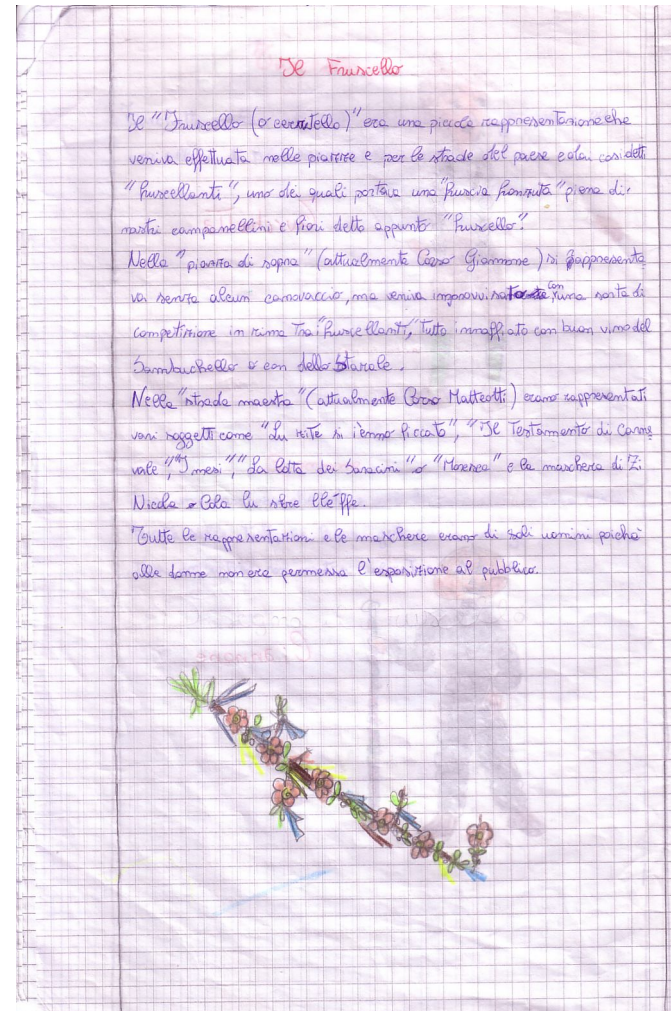 Il Fruscello
Il "Fruscello (o cerrutello)" era una piccola rappresentazione che
veniva effettuata nelle piazze e per le strade del paese e dai cosidetti
"fruscellanti", uno dei quali portava una "fruscia fronnuta" piena di
nastri campanellini e fiori detto appunto "fruscello".
Nella "piazza di sopra" (attualmente Corso Giannone) si rappresenta
va senza alcun canovaccio, ma veniva improvvisato con una sorta di
competizione in rima tra i "fruscellanti", tutto innaffiato con buon vino del
Sambuchello o con dello Starale.
Nella "strada maestra" (attualmente Corso Matteotti) erano rappresentati
vari soggetti come "Lu rite si i'enno ficcato", "Il Testamento di Carne
vale", "I mesi", "La lotta dei Saracini" o "Moresca" e la maschera di Zi
Nicola Cola lu
Tutte le rappresentazioni e le maschere erano di soli uomini poichè
alle donne non era permessa l'esposizione al pubblico.